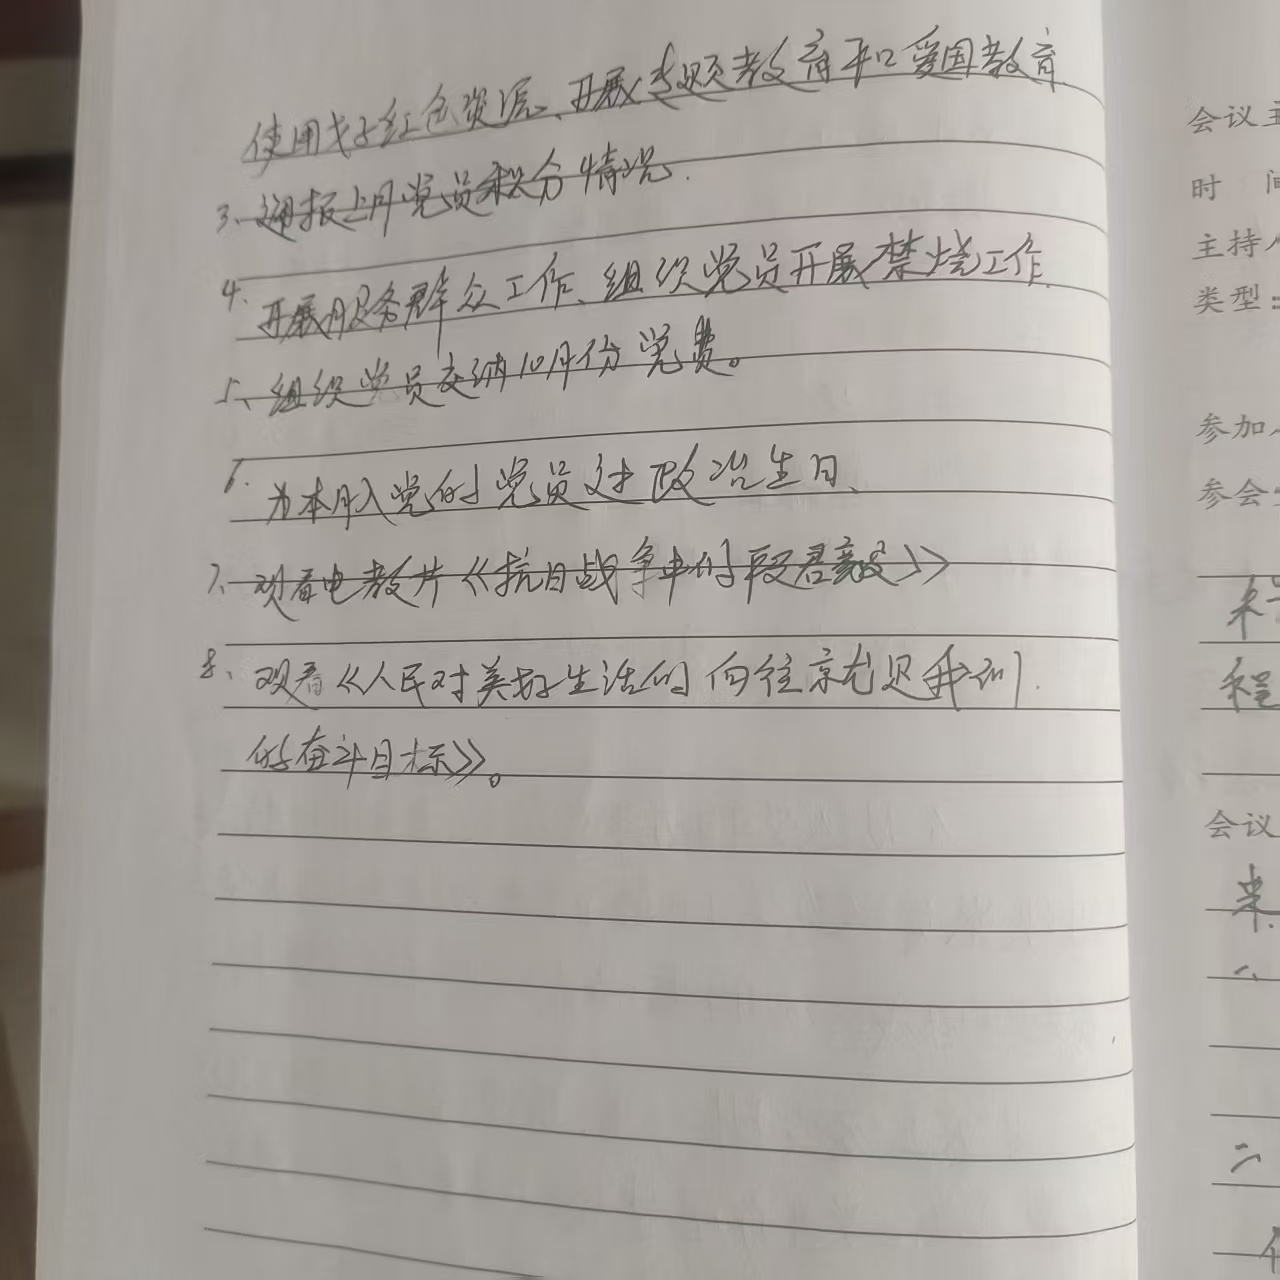 使用好红色资源、开展专题教育和爱国教育.
3、通报上月党员积分情况.
4. 开展服务群众工作、组织党员开展禁烧工作.
5、组织党员交纳10月份党费。
6. 为本月入党的党员过政治生日、
7、观看电教片《抗日战争中的段君毅》
8、观看《人民对美好生活的向往就是我们.
的奋斗目标》。
会议主
时 间
主持人
类型:
参加人
参会
程
会议
二